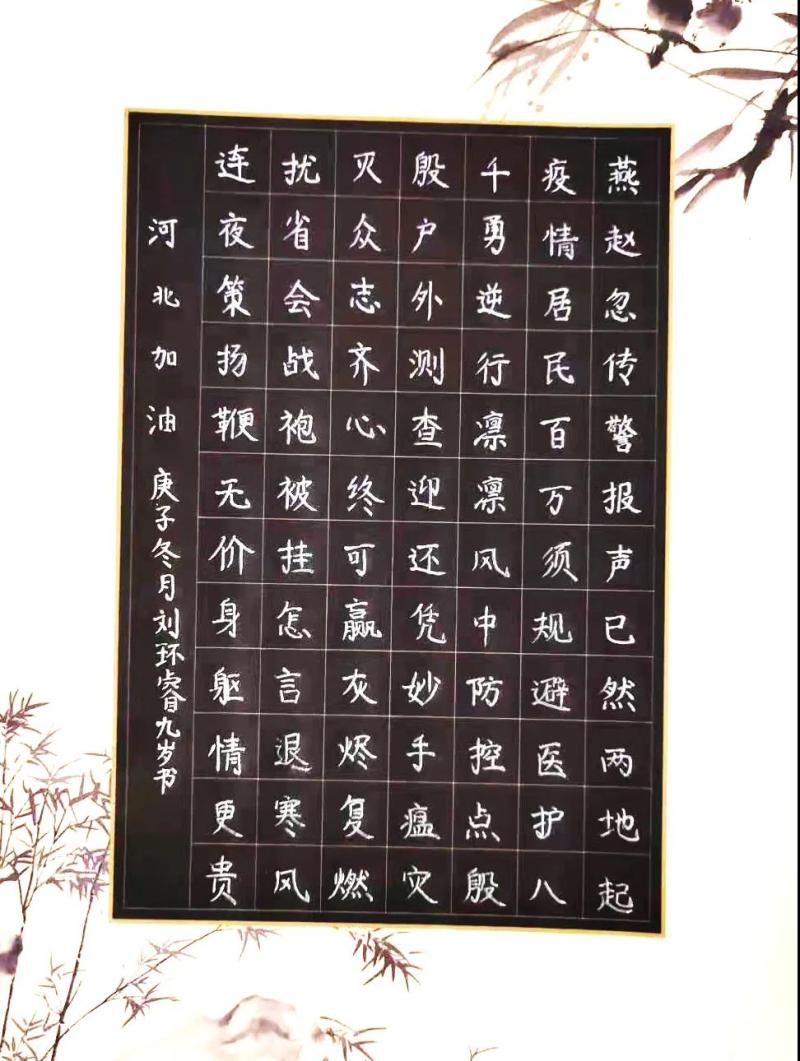 燕赵忽传警报声已然两地起
疫情居民百万须规避医护八
千勇逆行凛凛风中防控点殷
殷户外测查迎还凭妙手瘟灾
灭众志齐心终可赢灰烬复燃
扰省会战袍被挂怎言退寒风
连夜策扬鞭无价身躯情更贵
河北加油 庚子冬月刘环睿九岁书